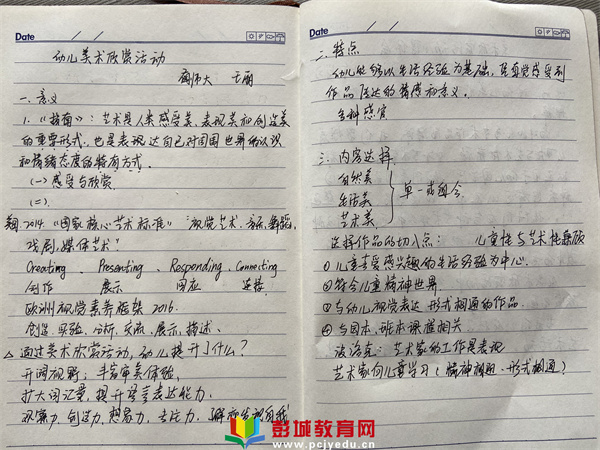 Date
幼儿美术欣赏活动
南师大 王丽
一、意义
1.《指南》:艺术是人类感受美、表现美和创造美
的重要形式,也是表现达自己对周围世界的认识
和情绪态度的独有方式。
(一)感受与欣赏
(二)
美2014.“国家核心艺术标准”视觉艺术、音乐、舞蹈、
戏剧、媒体艺术
Creating、Presenting、Responding、Connecting
创作 展示 回应 连接
欧洲视觉素养框架 2016.
创造、实验、分析、交流、展示、描述、
△通过美术欣赏活动,幼儿提升了什么?
开阔视野;丰富审美体验,
扩大词汇量,提升语言表达能力,
观察力、创造力、想象力、专注力、
Date
二、特点
幼儿能够以生活经验为基础,凭直觉感受到
作品传达的情感和意义。
多种感官
三、内容选择
自然美
生活美
艺术美
单一或组合
选择作品的切入点: 儿童性与艺术性兼顾
①儿童喜爱感兴趣的生活经验为中心.
②符合儿童精神世界.
③与幼儿视觉表达形式相通的作品.
④与园本、班本课程相关
波洛克:艺术家的工作是表现
艺术家向儿童学习(精神相遇、形式相通)
彭城教育网
www.pcjyedu.cn